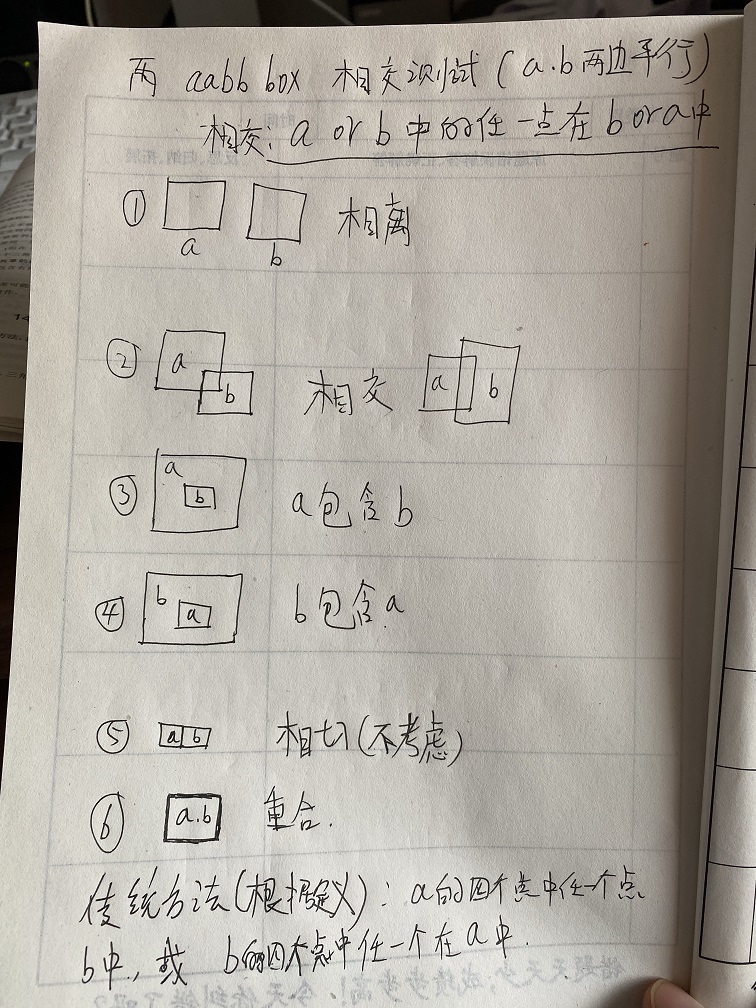 两 aabb box 相交测试(a.b两边平行)
相交: a or b 中的任一点在 b or a中
① a b 相离
② a b 相交 a b
③ a b a包含b
④ b a b包含a
⑤ a b 相切(不考虑)
⑥ a.b 重合.
传统方法(根据定义): a的四个点中任一个点
b中, 或 b的四个点中任一个在a中.